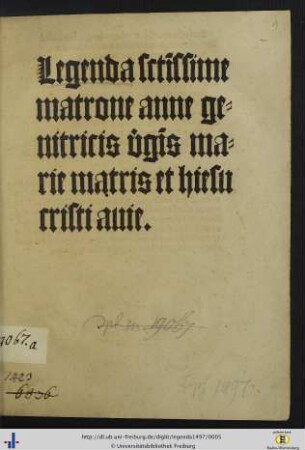 Legenda sctissime
matrone anne ge-
nitricis v̄gīs ma-
rie matris et hiesu
cristi auie.
9067.a
1423
http://dl.ub.uni-freiburg.de/diglit/legenda1497/0005
© Universitätsbibliothek Freiburg